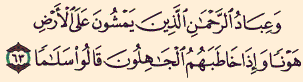 وَعِبَادُ ٱلرَّحْمَٰنِ ٱلَّذِينَ يَمْشُونَ عَلَى ٱلْأَرْضِ
هَوْنًا وَإِذَا خَاطَبَهُمُ ٱلْجَٰهِلُونَ قَالُوا۟ سَلَٰمًا ٦٣